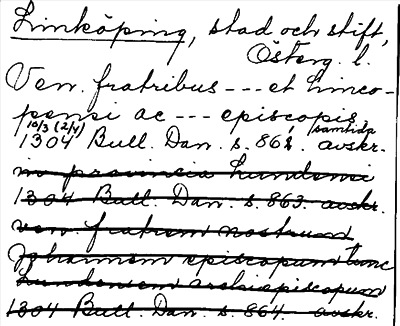 Linköping, stad och stift,
Österg. l.
Ven. fratribus --- et Linco-
pensi ac --- episcopis.
10/3 (2/4) samtida
1304 Bull. Dan. s. 862. avskr.
in provincia Lundensi
1304 Bull. Dan. s. 863. avskr.
ven. fratrem nostrum
Johannem episcopum tunc
Lundensem archiepiscopum
1304 Bull. Dan. s. 864. avskr.